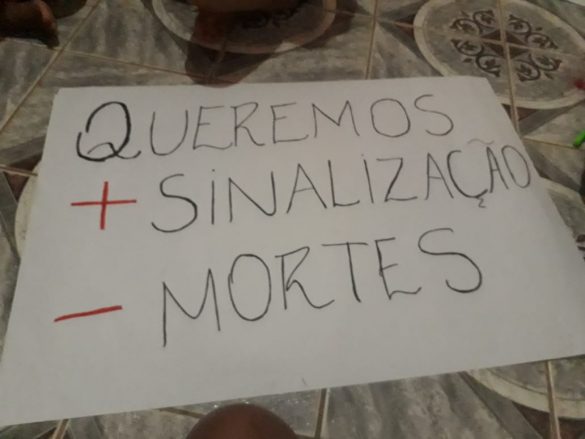 QUEREMOS
+ SINALIZAÇÃO
- MORTES